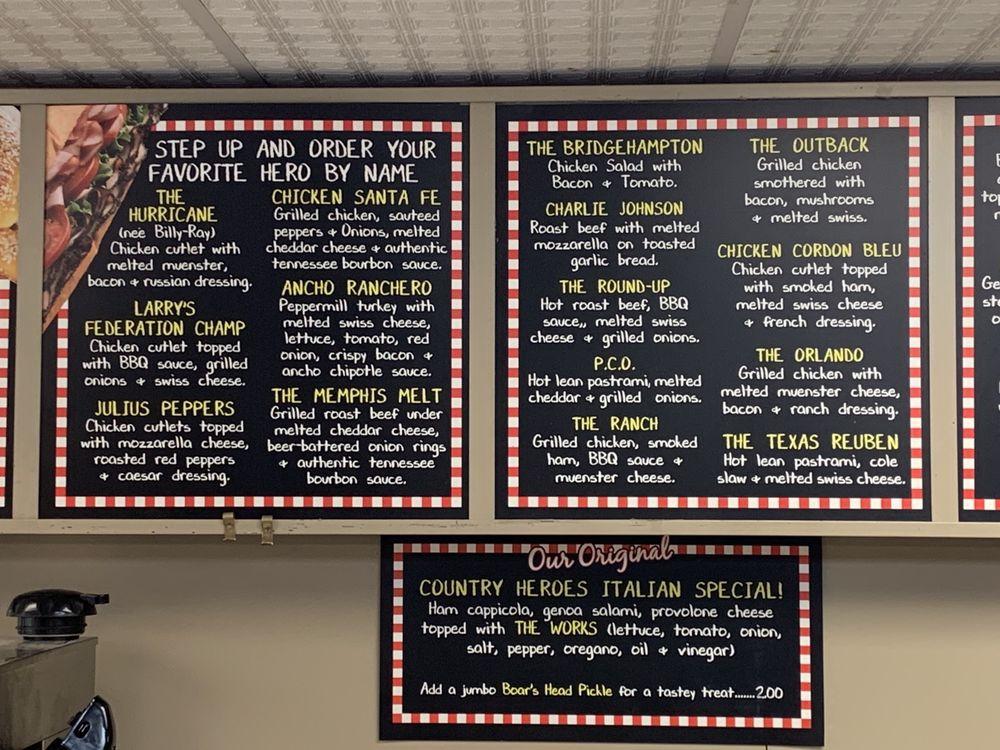 STEP UP AND ORDER YOUR
FAVORITE HERO BY NAME
THE
HURRICANE
(neè Billy-Ray)
Chicken cutlet with
melted muenster,
bacon & russian dressing.
LARRY'S
FEDERATION CHAMP
Chicken cutlet topped
with BBQ sauce, grilled
onions & swiss cheese.
JULIUS PEPPERS
Chicken cutlets topped
with mozzarella cheese,
roasted red peppers
& caesar dressing.
CHICKEN SANTA FE
Grilled chicken, sauteed
peppers & Onions, melted
cheddar cheese & authentic
tennessee bourbon sauce.
ANCHO RANCHERO
Peppermill turkey with
melted swiss cheese,
lettuce, tomato, red
onion, crispy bacon &
ancho chipotle sauce.
THE MEMPHIS MELT
Grilled roast beef under
melted cheddar cheese,
beer-battered onion rings
& authentic tennessee
bourbon sauce.
THE BRIDGEHAMPTON
Chicken Salad with
Bacon & Tomato.
CHARLIE JOHNSON
Roast beef with melted
mozzarella on toasted
garlic bread.
THE ROUND-UP
Hot roast beef, BBQ
sauce,, melted swiss
cheese & grilled onions.
P.C.O.
Hot lean pastrami, melted
cheddar & grilled onions.
THE RANCH
Grilled chicken, smoked
ham, BBQ sauce &
muenster cheese.
THE OUTBACK
Grilled chicken
smothered with
bacon, mushrooms
& melted swiss.
CHICKEN CORDON BLEU
Chicken cutlet topped
with smoked ham,
melted swiss cheese
& french dressing.
THE ORLANDO
Grilled chicken with
melted muenster cheese,
bacon & ranch dressing.
THE TEXAS REUBEN
Hot lean pastrami, cole
slaw & melted swiss cheese.
Our Original
COUNTRY HEROES ITALIAN SPECIAL!
Ham cappicola, genoa salami, provolone cheese
topped with THE WORKS (lettuce, tomato, onion,
salt, pepper, oregano, oil & vinegar)
Add a jumbo Boar's Head Pickle for a tastey treat.......2.00